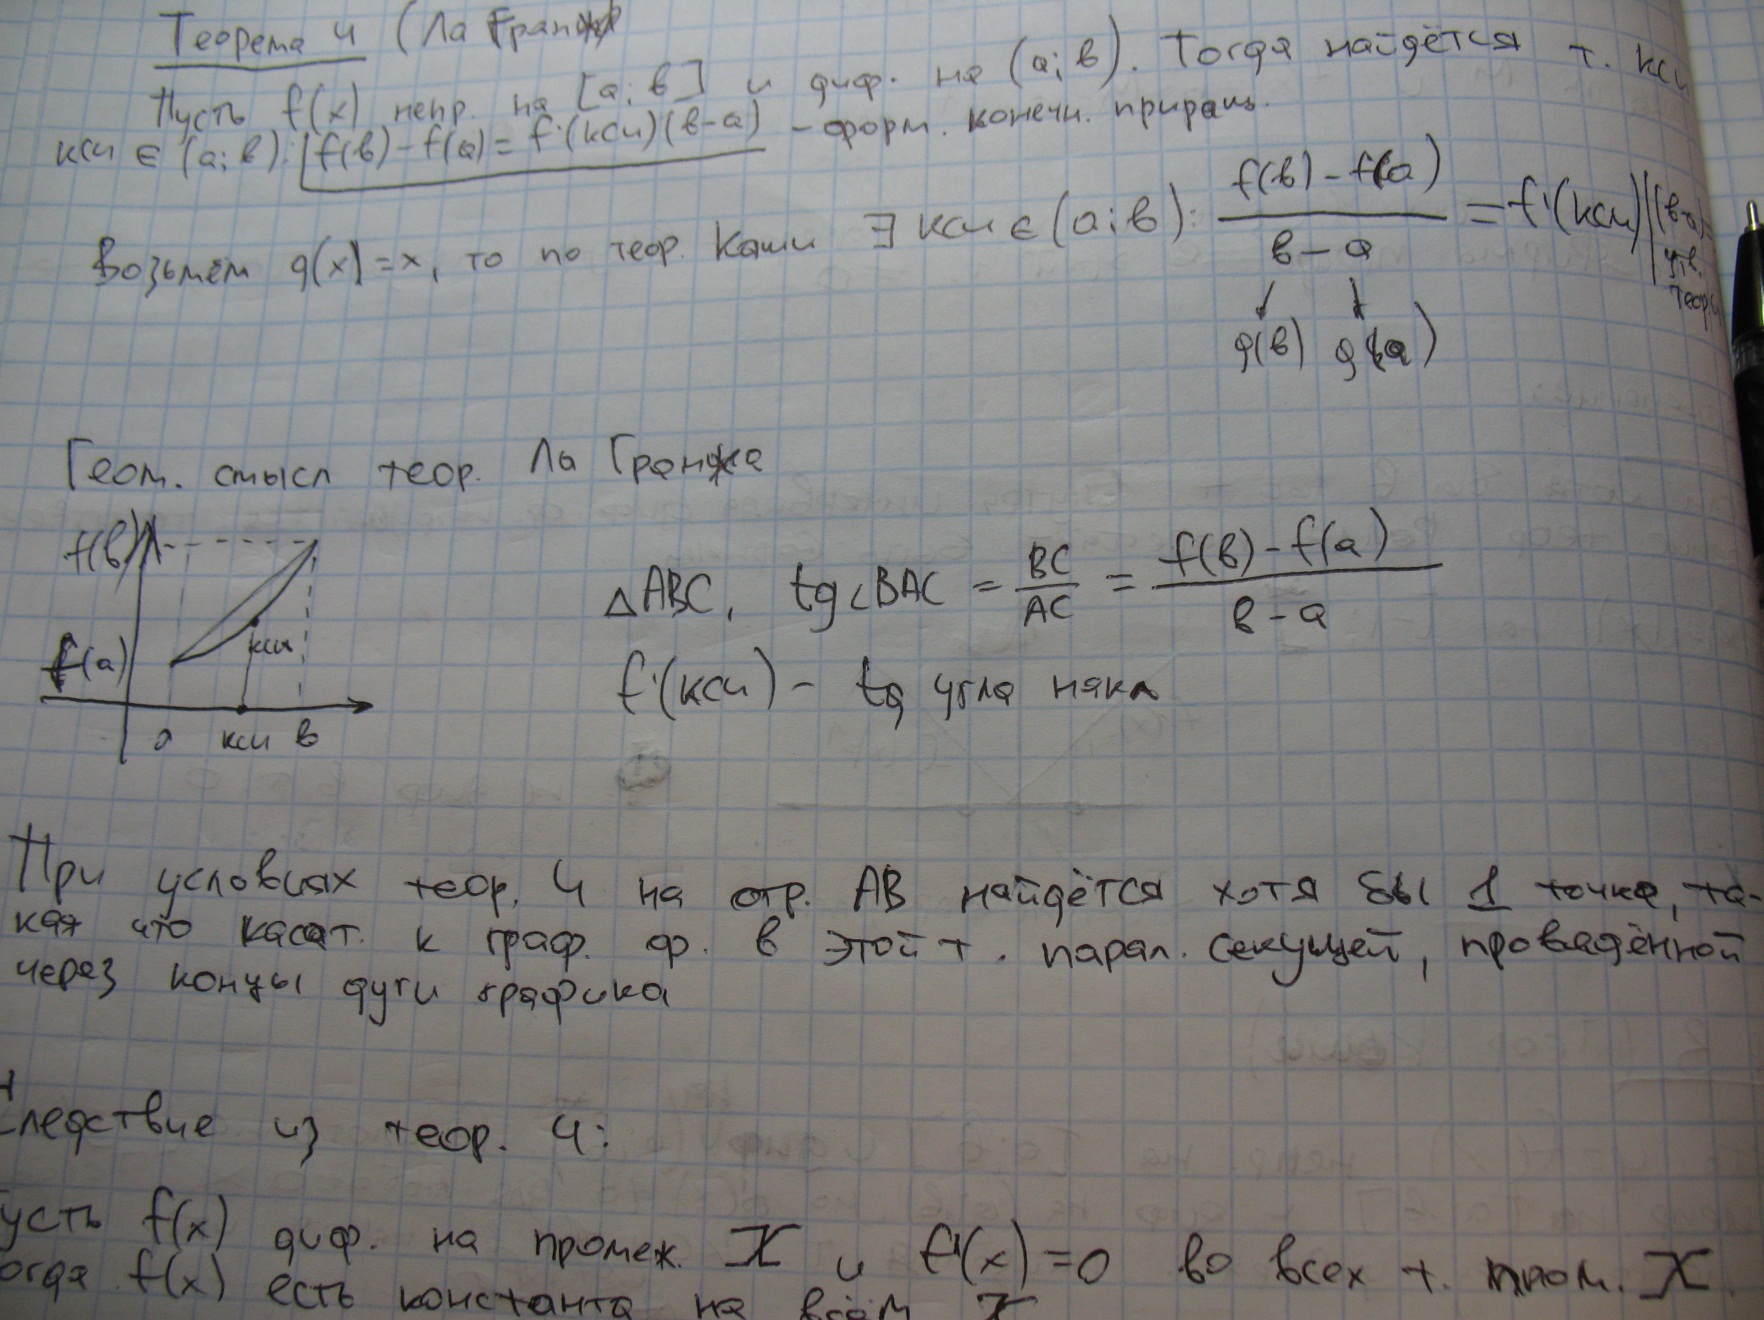 Теорема 4 (Ла Гранж
Пусть f(x) непр. на [a; в] и диф. на (a; в). Тогда найдётся т. кси
кси ∈ (a; в): f(в) - f(a) = f'(кси)(в-a) - форм. конечн. приращ.
Возьмём g(x) = x, то по теор. Коши ∃ кси ∈ (a; в): f(в) - f(a) / в - a = f'(кси) | (в-a)
утв.
теор.
g(в) g(a)
Геом. смысл теор. Ла Гранжа
f(в)
△ABC, tg∠BAC = BC/AC = f(в) - f(a) / в - a
кси
f(a)
f'(кси) - tg угла накл
a кси в
При условиях теор. 4 на отр. AB найдётся хотя бы 1 точка, та-
кая что касат. к граф. ф. в этой т. парал. секущей, проведённой
через концы дуги графика
Следствие из теор. 4:
усть f(x) диф. на промеж. X и f'(x) = 0 во всех т. пром. X.
огда f(x) есть константа на всём X